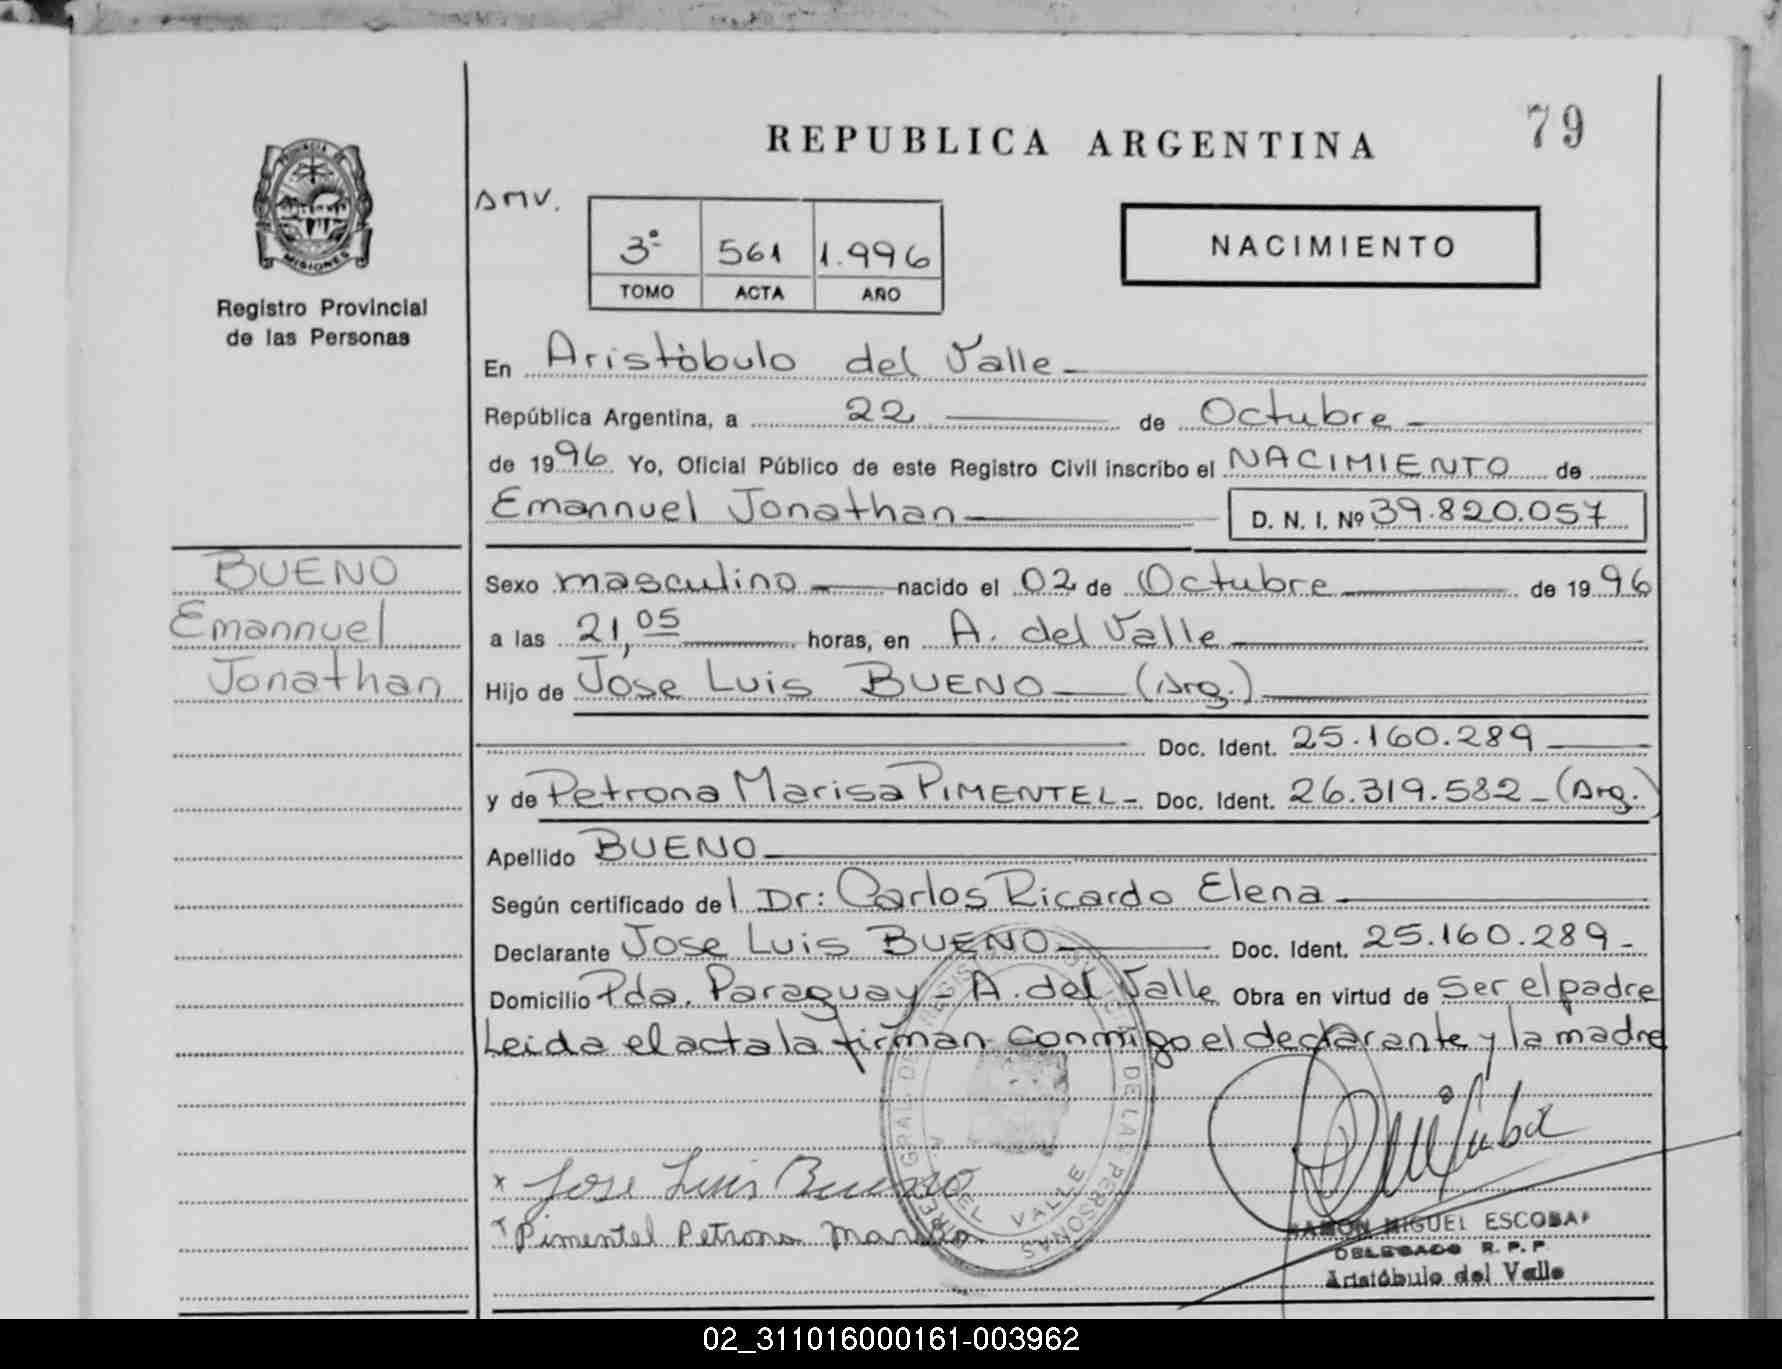 79
REPUBLICA ARGENTINA
PROVINCIA DE
MISIONES
Registro Provincial
de las Personas
AMV.
3º 561 1.996
TOMO ACTA AÑO
NACIMIENTO
En Aristóbulo del Valle
República Argentina, a 22 de Octubre
de 1996 Yo, Oficial Público de este Registro Civil inscribo el NACIMIENTO de
Emannuel Jonathan D. N. I. Nº 39.820.057
BUENO
Emannuel
Jonathan
Sexo masculino nacido el 02 de Octubre de 1996
a las 21,05 horas, en A. del Valle
Hijo de Jose Luis BUENO (Arg.)
Doc. Ident. 25.160.289
y de Petrona Marisa PIMENTEL - Doc. Ident. 26.319.582 - (Arg.)
Apellido BUENO
Según certificado del Dr: Carlos Ricardo Elena
Declarante Jose Luis BUENO Doc. Ident. 25.160.289 -
Domicilio Pda. Paraguay - A. del Valle Obra en virtud de Ser el padre
Leida el acta la firman conmigo el declarante y la madre
x Jose Luis Bueno
Pimentel Petrona Marisa
DE LAS PERSONAS
DEL VALLE
RAMON MIGUEL ESCOBAR
DELEGADO R. P. P.
Aristóbulo del Valle
02_311016000161-003962